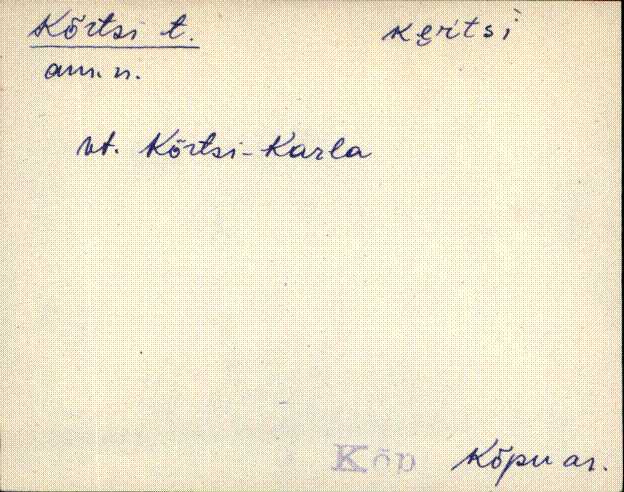 Kõrtsi t. kęŕtsì
am. n.
vt. Kõrtsi-Karla
Kõp Kõpu as.